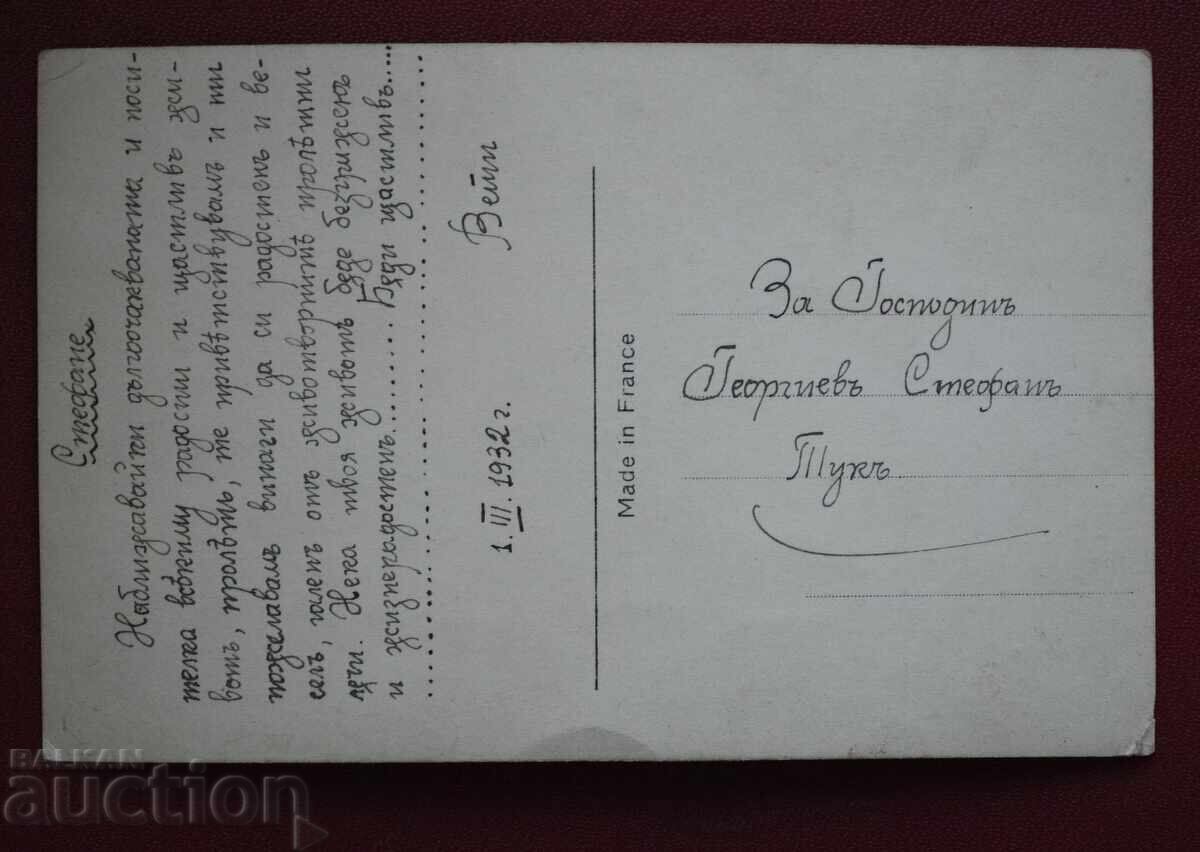 Стефане
Наближавайки дългоочакваната и носи-
телка всѣкиму радости и щастливъ жи-
вотъ, пролѣть, те привѣтствувамъ и ти
пожелавамъ винаги да си радостенъ и ве-
селъ, галенъ отъ животворнитѣ пролѣтни
лѫчи. Нека твоя животъ бѫде безгриженъ
и жизнерадостенъ......... Бѫди щастливъ.....
1. III. 1932 г. Вети
Made in France
За Господинъ
Георгиевъ Стефанъ
Тукъ
BALKAN
auction